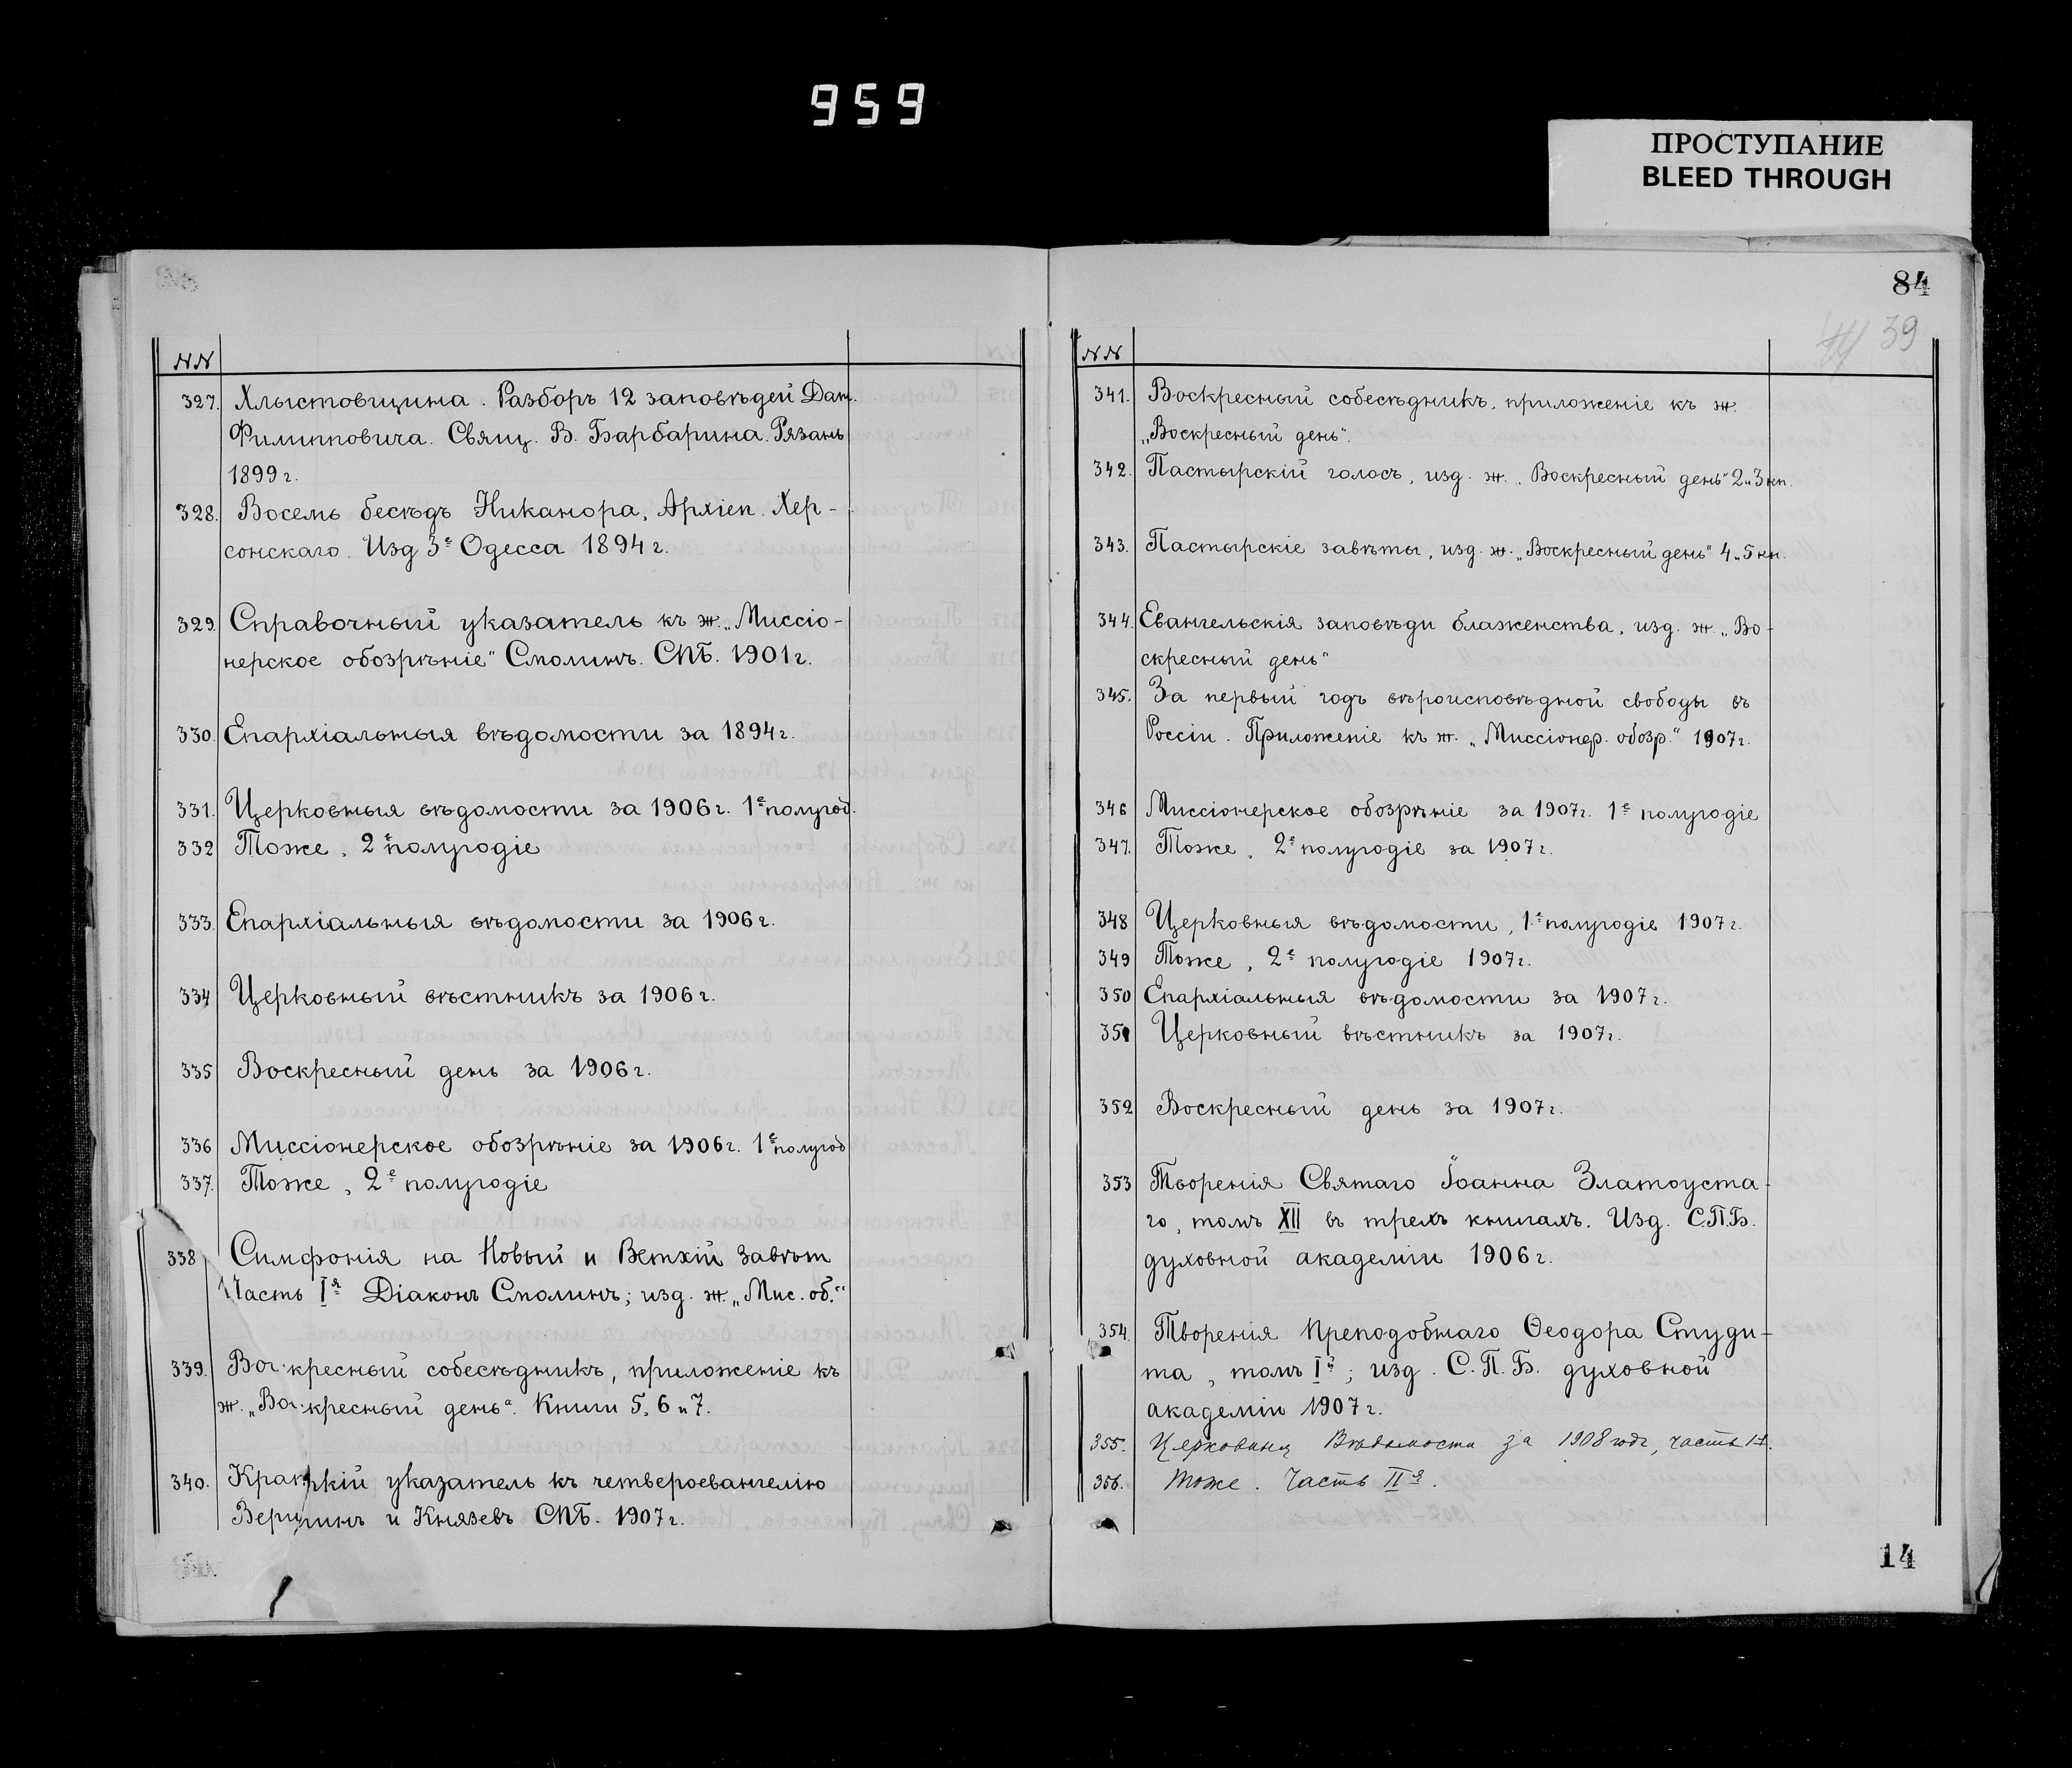 959
ПРОСТУПАНИЕ
BLEED THROUGH
NN
327. Хлыстовщина. Разборъ 12 заповѣдей Дан.
Филипповича. Свящ. В. Барбарина. Рязань
1899 г.
328. Восемь бесѣдъ Никанора, Архіеп. Хер-
сонскаго. Изд 3е Одесса 1894 г.
329. Справочный указатель къ ж. „Миссіо-
нерское обозрѣніе" Смолинъ. СПБ. 1901 г.
330. Епархіальныя вѣдомости за 1894 г.
331. Церковныя вѣдомости за 1906 г. 1е полугод.
332 Тоже, 2е полугодіе
333. Епархіальныя вѣдомости за 1906 г.
334 Церковный вѣстникъ за 1906 г.
335 Воскресный день за 1906 г.
336 Миссіонерское обозрѣніе за 1906 г. 1е полугод
337. Тоже, 2е полугодіе
338 Симфонія на Новый и Ветхій Завѣт
Часть Iя Діаконъ Смолинъ; изд. ж. „Мис. об."
339. Воскресный собесѣдникъ, приложеніе къ
ж. „Воскресный день". Книги 5, 6 и 7.
340. Краткій указатель къ четвероевангелію
Вершинъ и Князевъ СПБ. 1907 г.
84
39
NN
341. Воскресный собесѣдникъ, приложеніе къ ж.
„Воскресный день".
342. Пастырскій голосъ, изд. ж. „Воскресный день" 2 и 3 кн.
343. Пастырскіе завѣты, изд. ж. „Воскресный день" 4 и 5 кн.
344. Евангельскія заповѣди блаженства, изд. ж. „Во-
скресный день"
345. За первый годъ вѣроисповѣдной свободы въ
Россіи. Приложеніе къ ж. „Миссіонер. обозр." 1907 г.
346 Миссіонерское обозрѣніе за 1907 г. 1е полугодіе
347. Тоже, 2е полугодіе за 1907 г.
348 Церковныя вѣдомости, 1е полугодіе 1907 г.
349 Тоже, 2е полугодіе 1907 г.
350 Епархіальныя вѣдомости за 1907 г.
351 Церковный вѣстникъ за 1907 г.
352 Воскресный день за 1907 г.
353 Творенія Святаго Іоанна Златоуста-
го, томъ XII въ трехъ книгахъ. Изд. С.П.Б.
духовной академіи 1906 г.
354. Творенія Преподобнаго Ѳеодора Студи-
та, томъ Iй; изд. С. П. Б. духовной
академіи 1907 г.
355. Церковныя Вѣдомости за 1908 годъ, часть I я.
356. Тоже. Часть IIя.
14